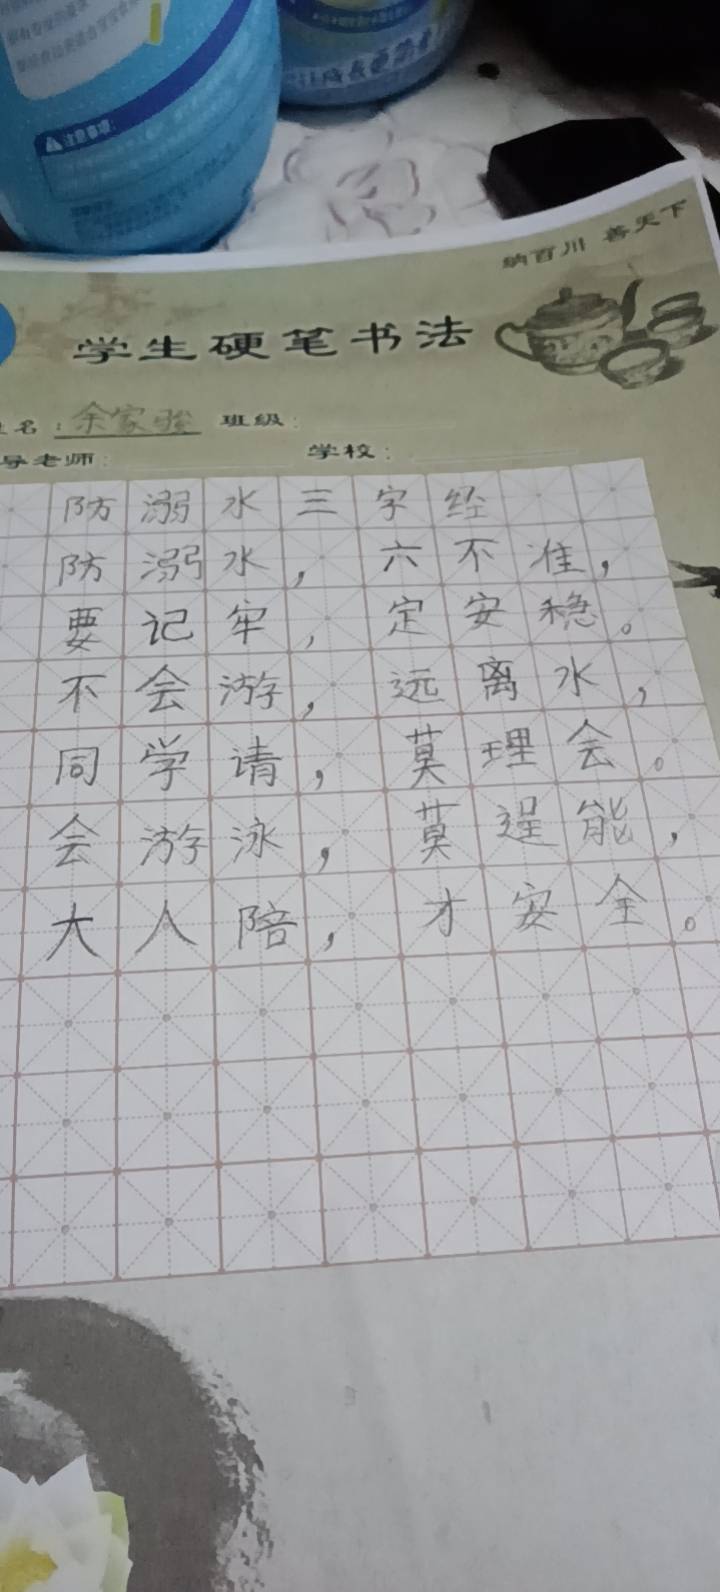 注意事项:
纳百川 善天下
学生硬笔书法
姓名：余家骏 班级：
导老师： 学校：
防溺水三字经
防溺水，六不准，
要记牢，定安稳。
不会游，远离水，
同学请，莫理会。
会游泳，莫逞能，
大人陪，才安全。